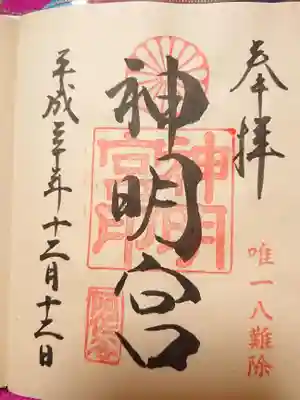 奉拝
唯一八難除
神明宮
神明宮印
阿佐谷
平成三十年十二月十二日